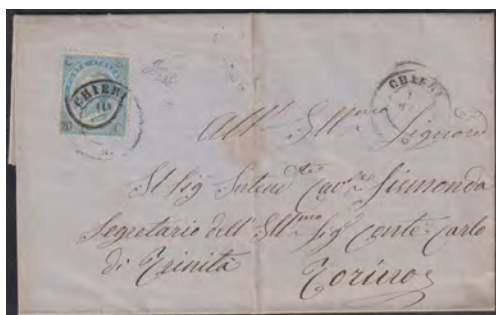 CHIERI
CHIERI
All' Ill.mo Signore
Il Sig. Intend.te Cav.re Sismonda
Segretario dell' Ill.mo Sig. Conte Carlo
di Trinità
Torino